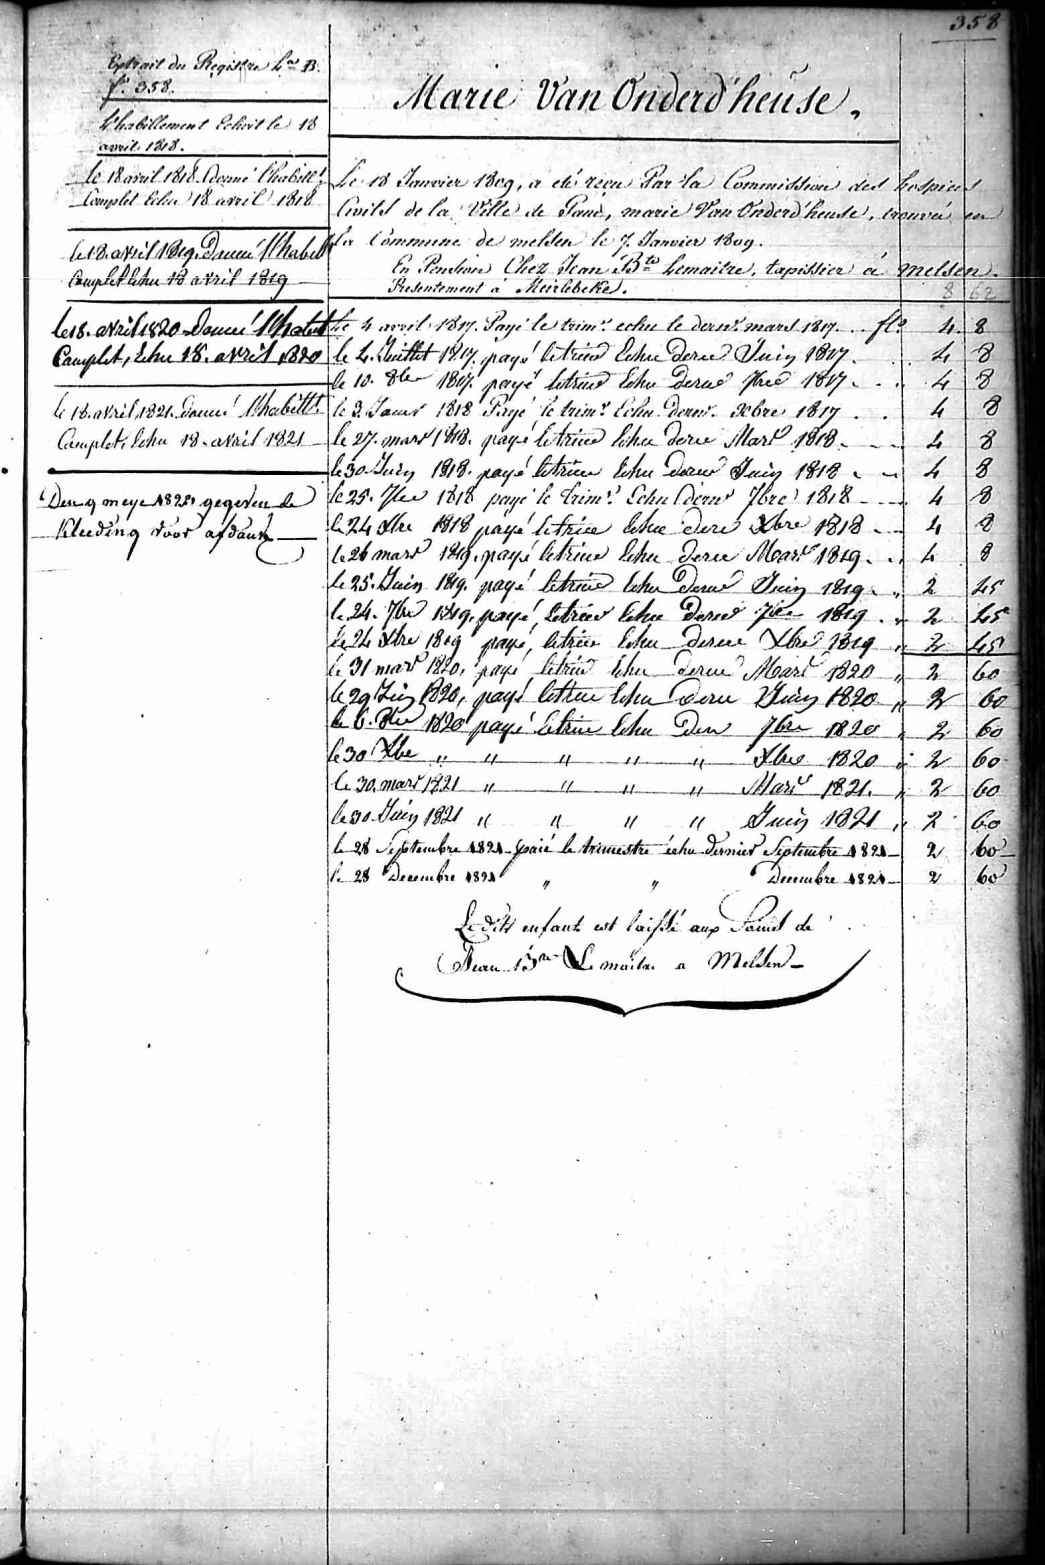 358
Extrait du Registre L.ra B.
f.o 358.
L'habillement Echoit le 18
avril 1818.
Le 18 avril 1818. donné l'habill.t
Complet Echu 18 avril 1818
le 18. avril 1819. Donné l'habill
Complet Echu 18 avril 1819
le 18. avril 1820 Donné l'habill
Complet, Echu 18. avril 1820
le 18. avril 1821. donné l'habill.t
Complet, Echu 18. avril 1821
Den 9 meye 1825. gegeven de
kleeding voor afdank
Marie Van Onderd'heuse.
Le 18 Janvier 1809, a eté reçu Par la Commission des hospices
Civils de la Ville de Gand, marie Van Onderd'heuse, trouvée en
la Commune de melsen le 7. Janvier 1809.
En Pension Chez Jean B.te Lemaitre, tapissier à melsen.
Presentement à Meirelebeke. 8 62
Le 4 avril 1817. Payé le trim.e echu le dern.r mars 1817. . . fl.s 4 8
le 4. Juillet 1817. payé letrim Echu derne Juin 1817. 4 8
le 10. 8bre 1817. payé letrim Echu derne 7bre 1817. 4 8
le 3. Janv.r 1818 Payé le trim.e Echu dern.r xbre 1817 . . 4 8
le 27. mars 1818. payé letrim Echu derne Mars 1818. 4 8
le 30 Juin 1818. payé letrim Echu derne Juin 1818 4 8
le 25. 7bre 1818 payé le trim.e Echu dern.r 7bre 1818 4 8
le 24 Xbre 1818 payé letrim Echu derne Xbre 1818 4 8
le 26 mars 1819. payé letrim Echu derne Mars 1819. 4 8
le 25. Juin 1819. payé letrim Echu derne Juin 1819. " 2 45
le 24. 7bre 1819. payé, letrim Echu derne 7bre 1819 " 2 45
le 24 Xbre 1819 payé, letrim Echu derne Xbre 1819 " 2 45
le 31 mars 1820, payé letrim Echu derne Mars 1820 " 2 60
le 29 Juin 1820, payé letrim Echu derne Juin 1820 " 2 60
le 6. 8bre 1820 payé letrim Echu Dern 7bre 1820 " 2 60
le 30 Xbre " " " " " Xbre 1820 " 2 60
le 30. mars 1821 " " " " Mars 1821. " 2 60
le 30 Juin 1821 " " " " Juin 1821 " 2 60
le 28 Septembre 1821 paié le trimestre échu dernier Septembre 1821 2 60
le 28 Decembre 1821 " " Decembre 1821 2 60
Ledit enfant est laissé aux Soins de
Jean B.te Le maitre a Melsen